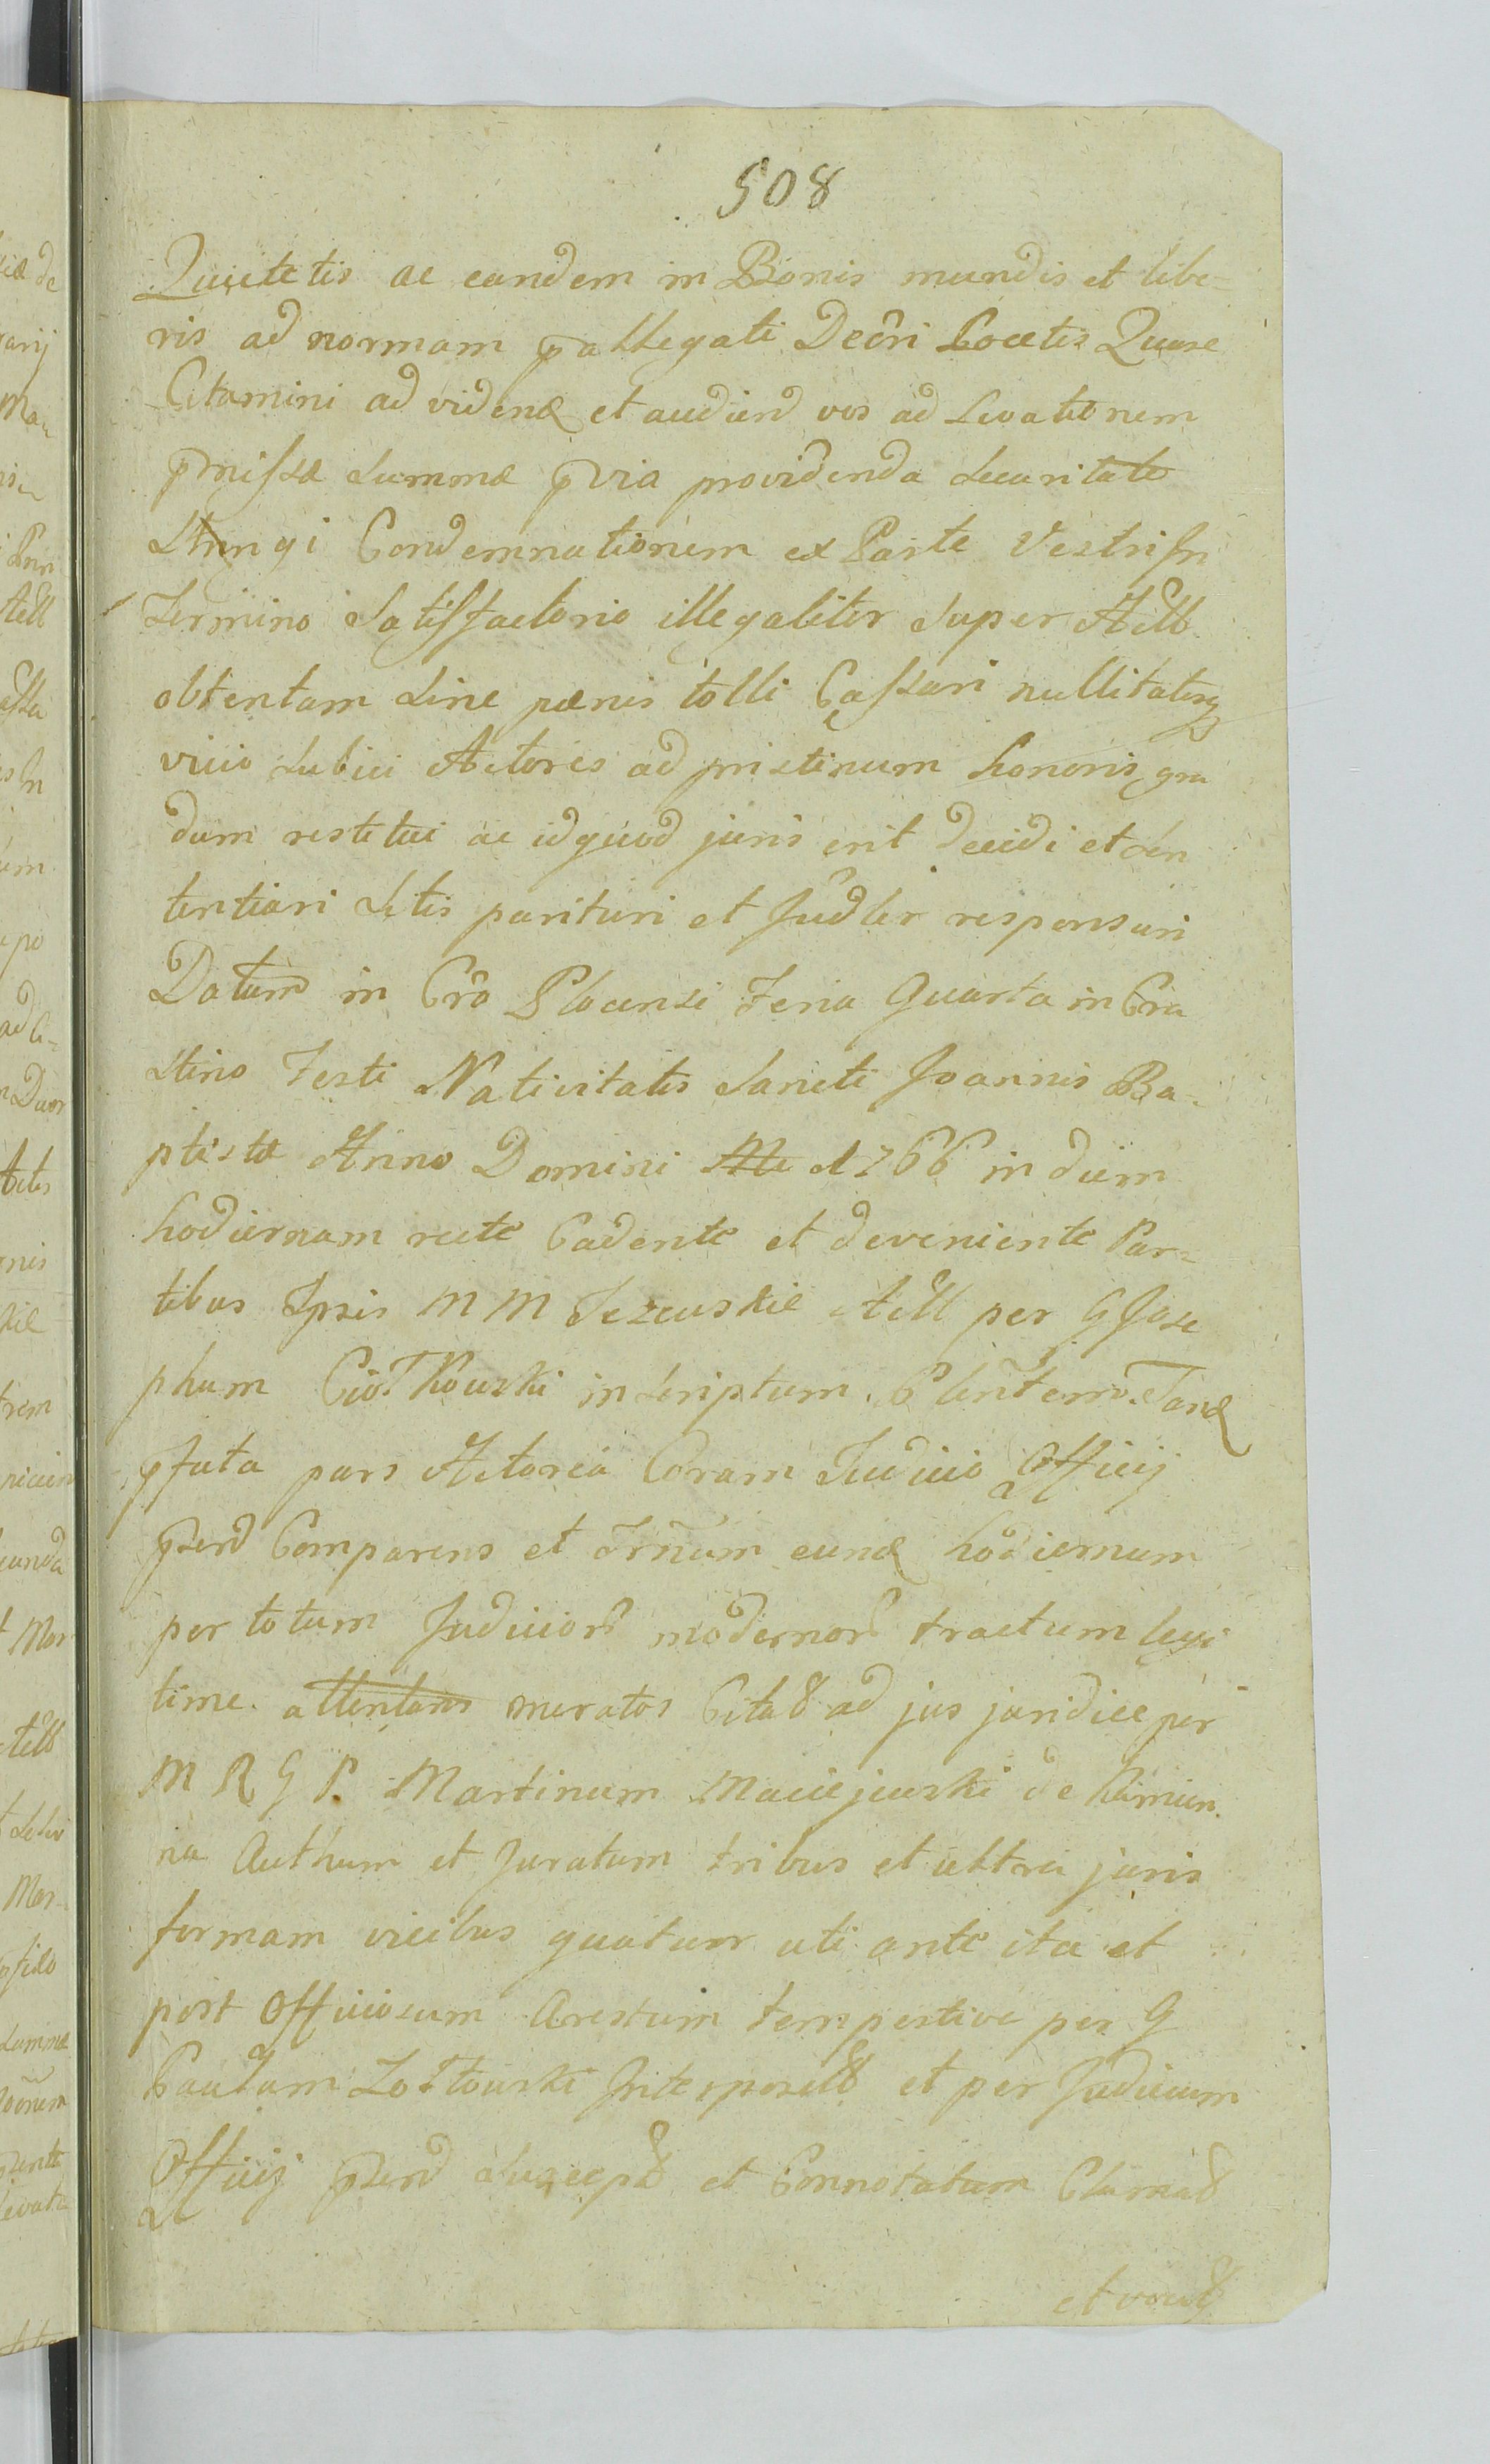 508
Quietetis ac eandem in Bonis mundis et libe=
ris ad normam pallegati Decri Locetis Quare
Citamini ad videnđ et audienđ vos ad Levationem
pmissæ Summæ pvia providenda Securitate
Stringi Condemnationem ex Parte Vestri In
Termino Satisfactorio illegaliter Super Actb
obtentam Sine pœnis tolli Cassari nullitatisq
vicio Subici Actores ad pristinum honoris gra
dum restitui ac id quod juris erit decidi et Sen
tentiari Sitis parituri et Judler responsuri
Datum in Cro Plocensi Feria Quarta in Cra
stino Festi Nativitatis Sancti Joannis Ba=
ptistæ Anno Domini 1766 in diem
hodiernam recte Cadente et deveniente Par=
tibus Ipsis M M Jezewskie Actb per G Jose
phum Ciołkowski in Scriptum. Tanđ
pfata pars Actorea Coram Judicio Officij
pserđ Comparens et Trnum eunđ hodiernum
per totum Judicior modernor tractum legi
time attentans meratos Citatɔ ad jus juridice per
M R G P. Martinum Maciejewski de Kamien
na Authum et Juratum tribus et ultra juris
formam vicibus quatuor uti ante ita et
post Officiosum Arestum tempestive per G
Paulum Żółtowski Interposit et per Judicium
Officij pserđ Suscept et Connotatum Clamat
et vocat